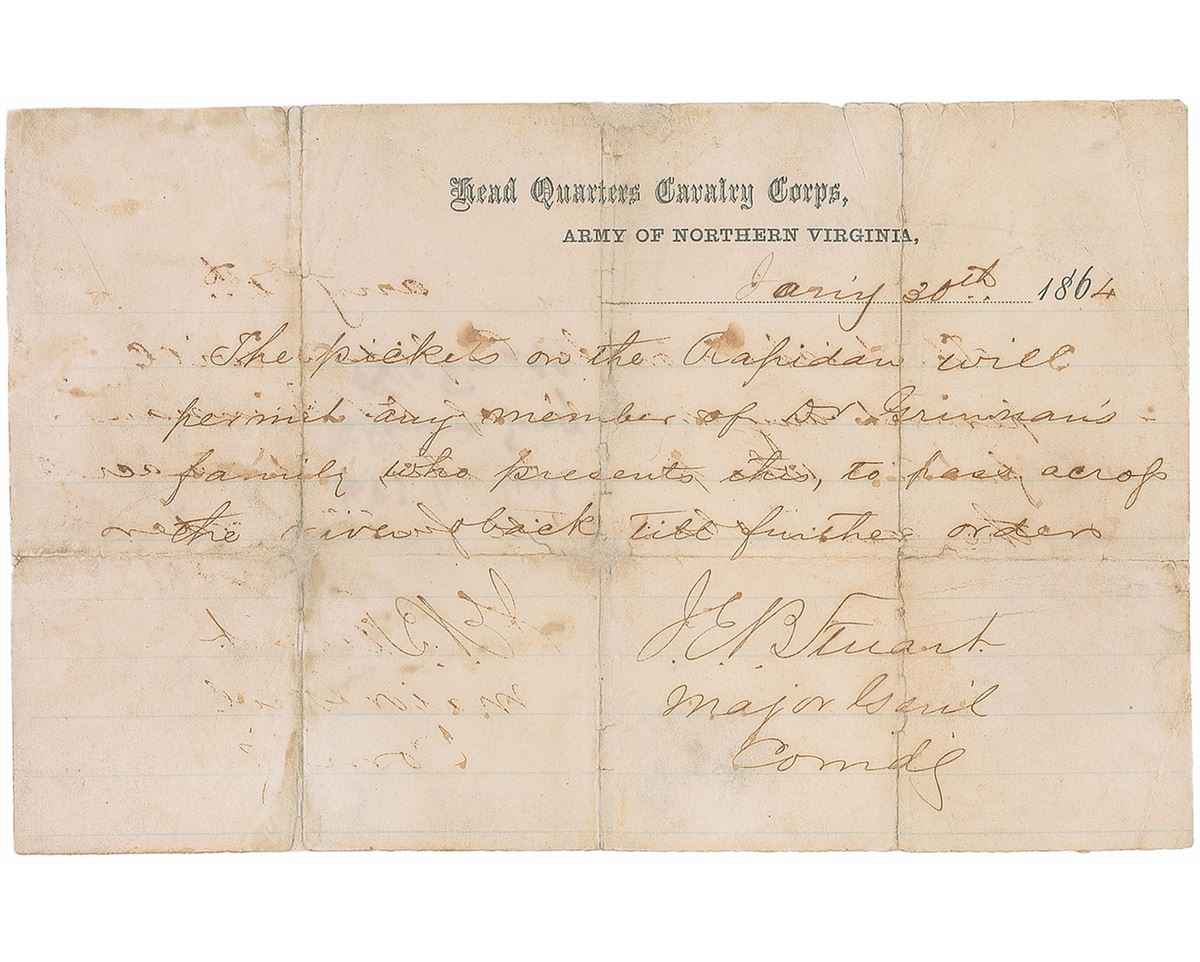 Head Quarters Cavalry Corps,
ARMY OF NORTHERN VIRGINIA,
Jany 30th 1864
The pickets on the Rapidan will
permit any member of Dr Grinnan's
family who presents this, to pass across
the river & back till further orders
J.E.B Stuart
Major Genl
Comdg